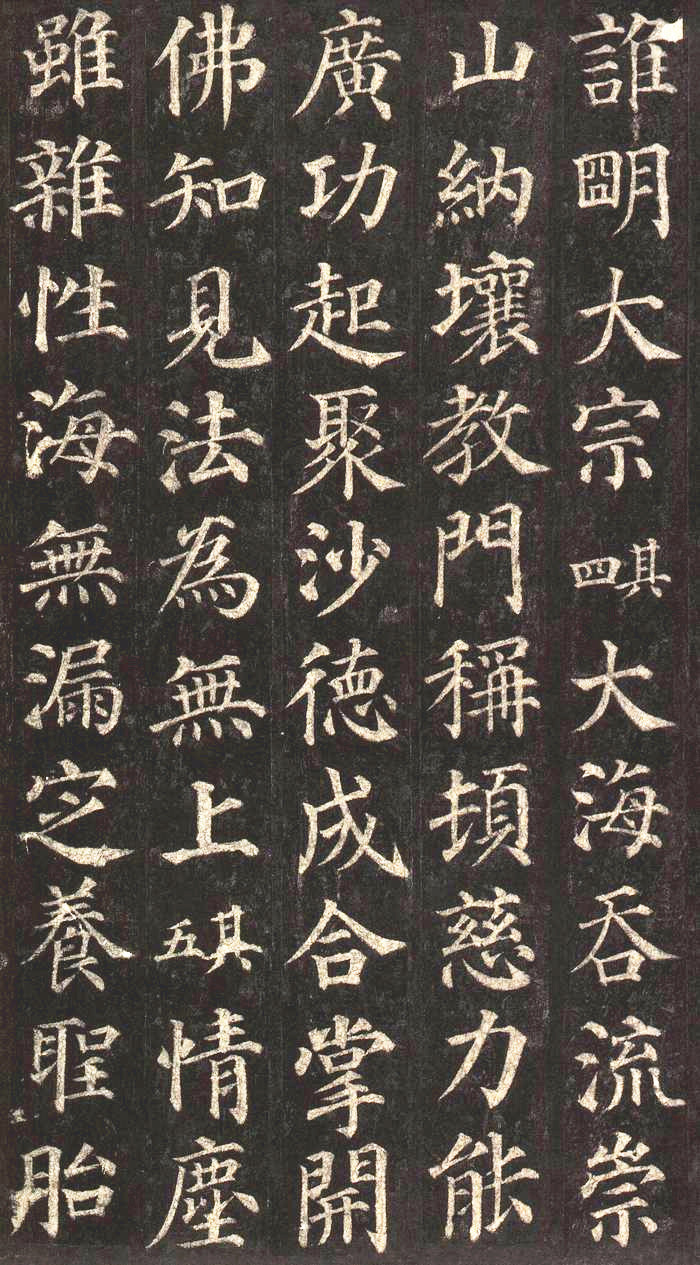 誰朙大宗其四大海吞流崇
山納壤教門稱頓慈力能
廣功起聚沙徳成合掌開
佛知見法為無上其五情塵
雖雜性海無漏㝎養聖胎